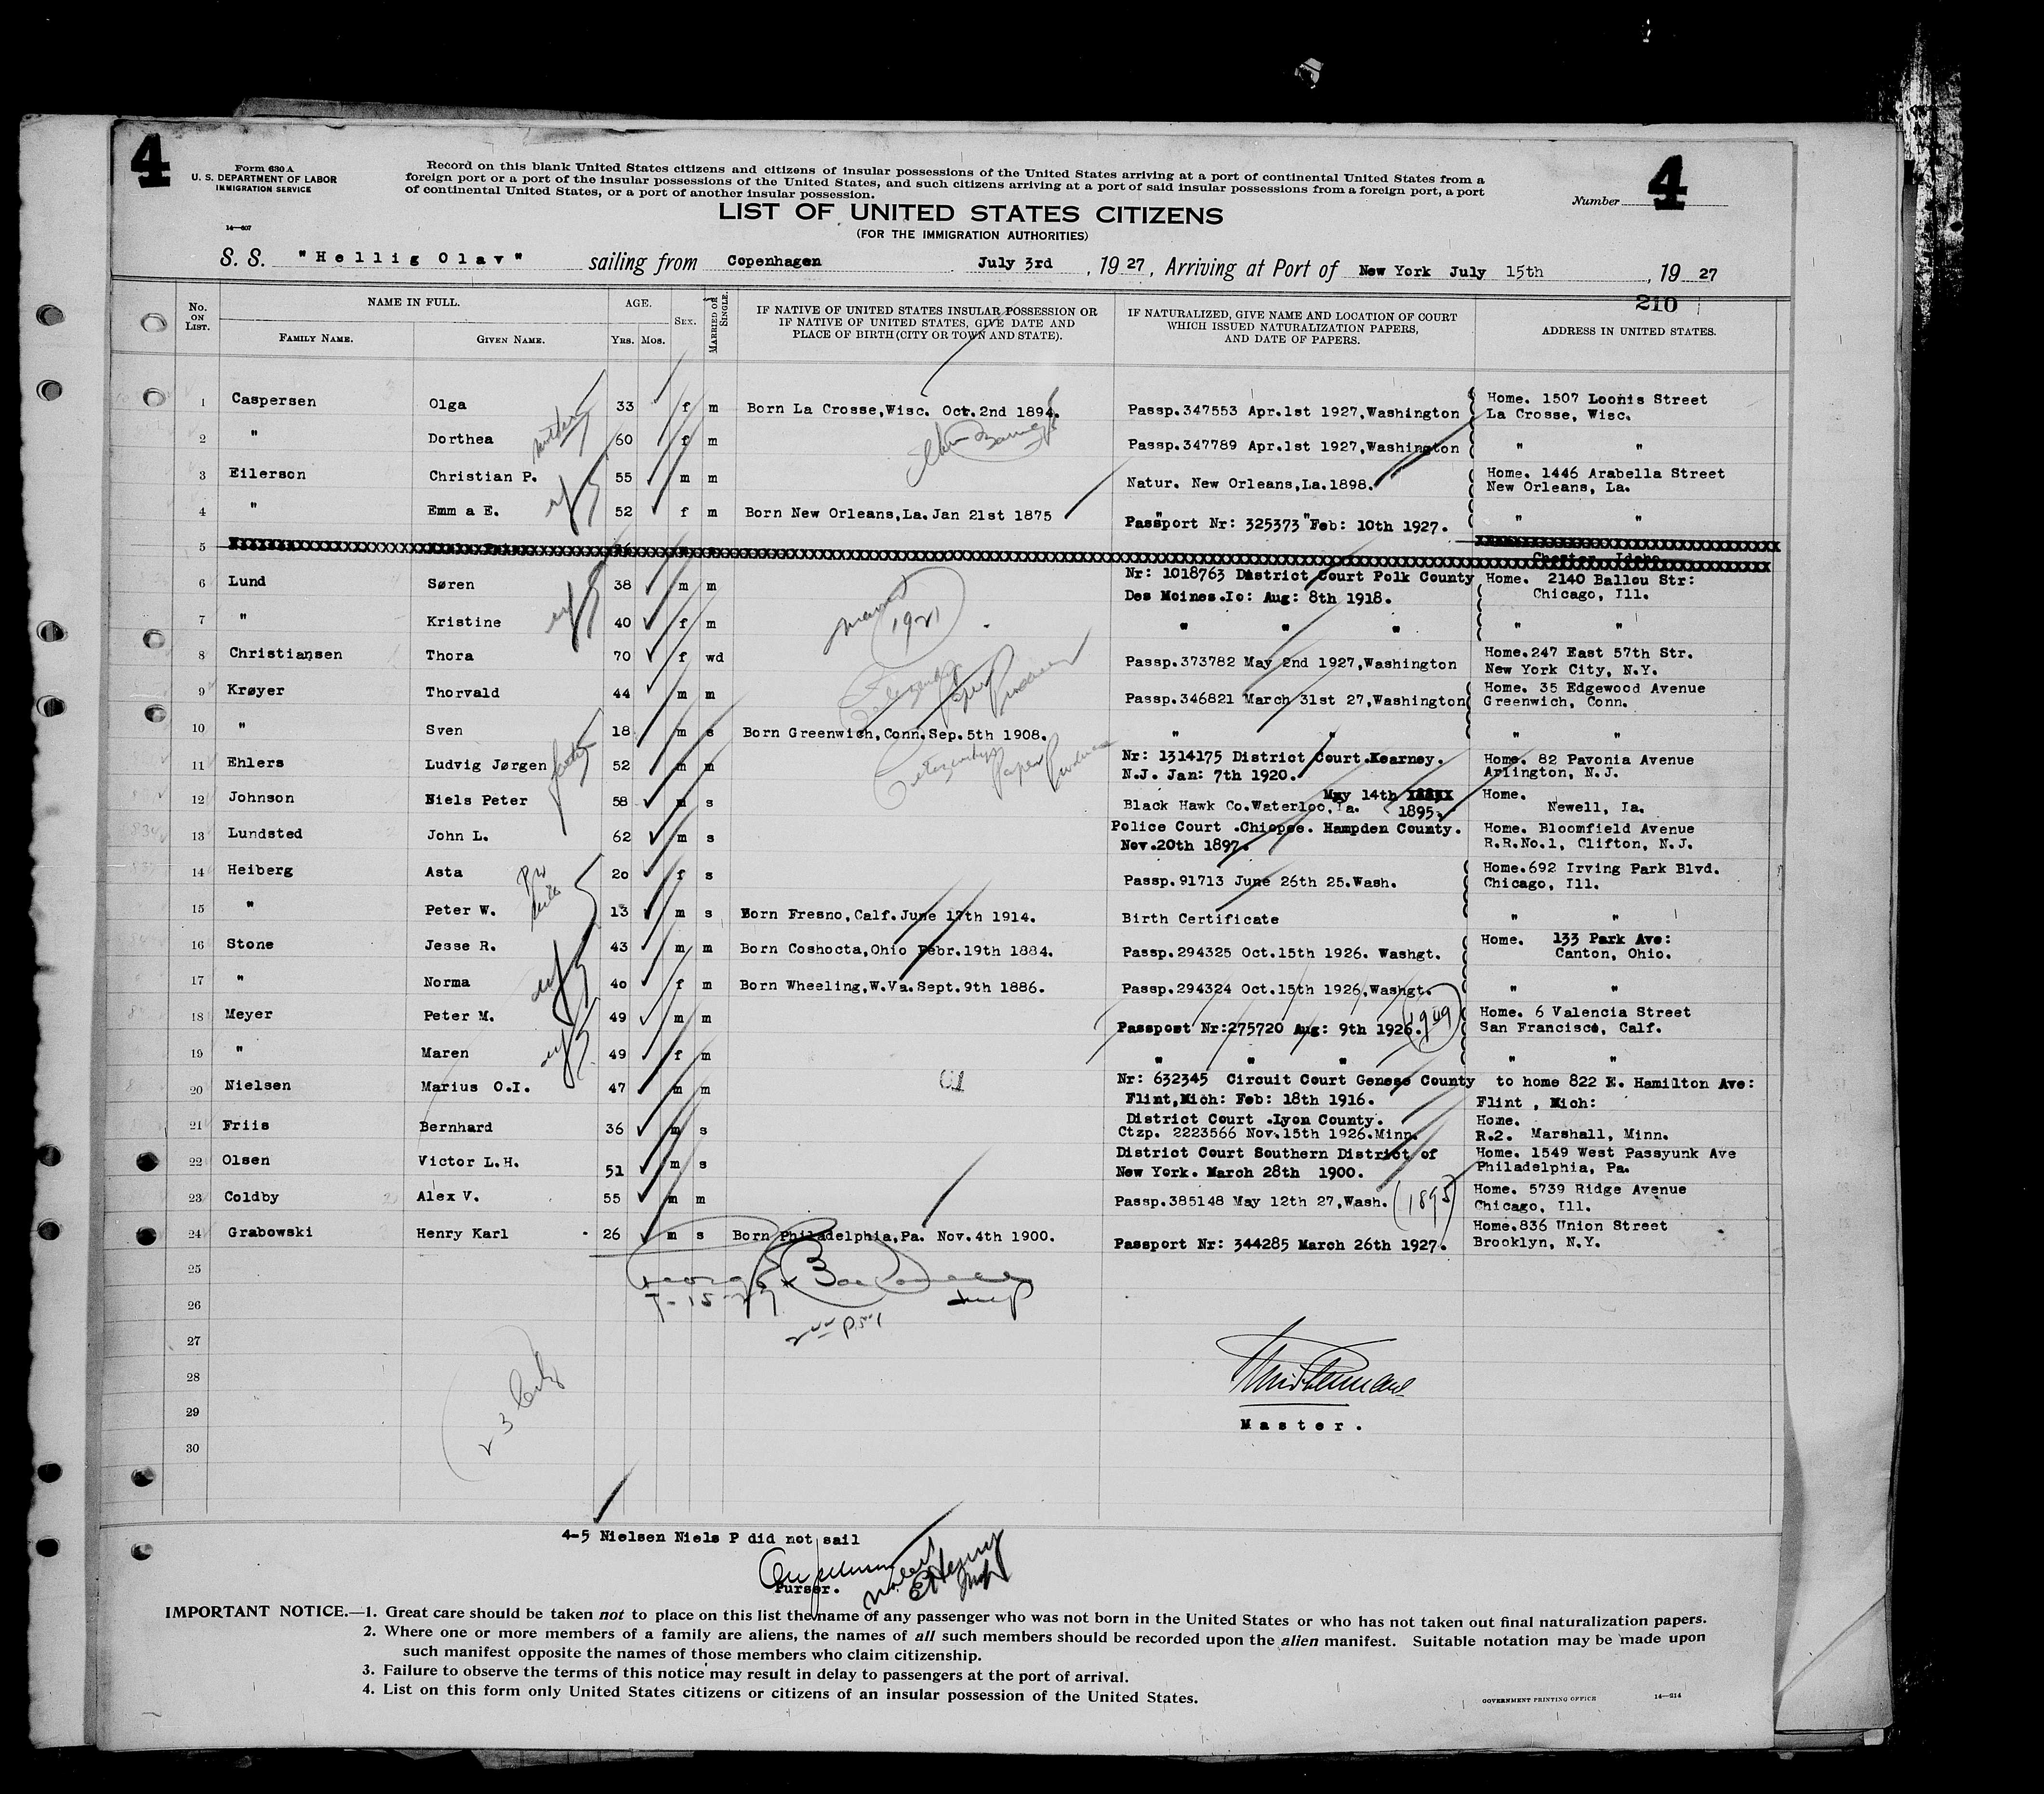 4
4
Form 630 A
U. S. DEPARTMENT OF LABOR
IMMIGRATION SERVICE
14—607
Record on this blank United States citizens and citizens of insular possessions of the United States arriving at a port of continental United States from a
foreign port or a port of the insular possessions of the United States, and such citizens arriving at a port of said insular possessions from a foreign port, a port
of continental United States, or a port of another insular possession.
Number
LIST OF UNITED STATES CITIZENS
(FOR THE IMMIGRATION AUTHORITIES)
S. S. "Hellig Olav" sailing from Copenhagen July 3rd, 1927, Arriving at Port of New York July 15th, 1927
210
No. ON LIST. NAME IN FULL. AGE. SEX. MARRIED OR SINGLE. IF NATIVE OF UNITED STATES INSULAR POSSESSION OR IF NATIVE OF UNITED STATES, GIVE DATE AND PLACE OF BIRTH (CITY OR TOWN AND STATE). IF NATURALIZED, GIVE NAME AND LOCATION OF COURT WHICH ISSUED NATURALIZATION PAPERS, AND DATE OF PAPERS. ADDRESS IN UNITED STATES.
FAMILY NAME. GIVEN NAME. YRS. MOS.
1 Caspersen Olga 33 f m Born La Crosse,Wisc. Oct.2nd 1894. Passp.347553 Apr.1st 1927,Washington Home. 1507 Loonis Street
La Crosse, Wisc.
2 " Dorthea mother 60 f m Passp.347789 Apr.1st 1927,Washington " "
3 Eilerson Christian P. 55 m m Natur. New Orleans,La.1898. Home. 1446 Arabella Street
New Orleans, La.
4 " Emm a E. 52 f m Born New Orleans,La.Jan 21st 1875 " "
Passport Nr: 325373 Feb: 10th 1927. " "
5 Chester, Idaho
6 Lund Søren 38 m m Nr: 1018763 District Court Polk County Home. 2140 Ballou Str:
Des Moines.Io: Aug: 8th 1918. Chicago, Ill.
7 " Kristine 40 f m married 1921 " " " " "
8 Christiansen Thora 70 f wd Passp.373782 May 2nd 1927,Washington Home.247 East 57th Str.
New York City, N.Y.
9 Krøyer Thorvald 44 m m Passp.346821 March 31st 27,Washington Home. 35 Edgewood Avenue
Greenwich, Conn.
10 " Sven father 18 m s Born Greenwich,Conn.Sep.5th 1908. " " " "
11 Ehlers Ludvig Jørgen 52 m m Citizenship Paper Produced Nr: 1314175 District Court.Kearney. Home. 82 Pavonia Avenue
N.J. Jan: 7th 1920. Arlington, N.J.
12 Johnson Niels Peter 58 m s May 14th Home.
Black Hawk Co.Waterloo,Ia. 1895. Newell, Ia.
13 Lundsted John L. 62 m s Police Court .Chiopee. Hampden County. Home. Bloomfield Avenue
Nov.20th 1897. R.R.No.1, Clifton, N.J.
14 Heiberg Asta 20 f s Passp.91713 June 26th 25.Wash. Home.692 Irving Park Blvd.
Chicago, Ill.
15 " Peter W. 13 m s Born Fresno,Calf.June 17th 1914. Birth Certificate " "
16 Stone Jesse R. 43 m m Born Coshocta,Ohio Febr.19th 1884. Passp.294325 Oct.15th 1926. Washgt. Home. 133 Park Ave:
Canton, Ohio.
17 " Norma 40 f m Born Wheeling,W.Va.Sept.9th 1886. Passp.294324 Oct.15th 1926,Washgt. " "
18 Meyer Peter M. 49 m m Passport Nr:275720 Aug: 9th 1926. 1909 Home. 6 Valencia Street
San Francisco, Calf.
19 " Maren 49 f m " " " " "
20 Nielsen Marius O.I. 47 m m Nr: 632345 Circuit Court Genese County to home 822 E. Hamilton Ave:
Flint,Mich: Feb: 18th 1916. Flint , Mich:
21 Friis Bernhard 36 m s District Court .Lyon County. Home.
Ctzp. 2223566 Nov.15th 1926.Minn. R.2. Marshall, Minn.
22 Olsen Victor L.H. 51 m s District Court Southern District of Home. 1549 West Passyunk Ave
New York. March 28th 1900. Philadelphia, Pa.
23 Coldby Alex V. 55 m m Passp.385148 May 12th 27,Wash. (1895) Home. 5739 Ridge Avenue
Chicago, Ill.
24 Grabowski Henry Karl 26 m s Born Philadelphia,Pa. Nov.4th 1900. Passport Nr: 344285 March 26th 1927. Home.836 Union Street
Brooklyn, N.Y.
25
26 7-15-27 Insp
27
28
29 Master.
30
4-5 Nielsen Niels P did not sail
Purser.
IMPORTANT NOTICE.—1. Great care should be taken not to place on this list the name of any passenger who was not born in the United States or who has not taken out final naturalization papers.
2. Where one or more members of a family are aliens, the names of all such members should be recorded upon the alien manifest. Suitable notation may be made upon
such manifest opposite the names of those members who claim citizenship.
3. Failure to observe the terms of this notice may result in delay to passengers at the port of arrival.
4. List on this form only United States citizens or citizens of an insular possession of the United States.
GOVERNMENT PRINTING OFFICE 14—214